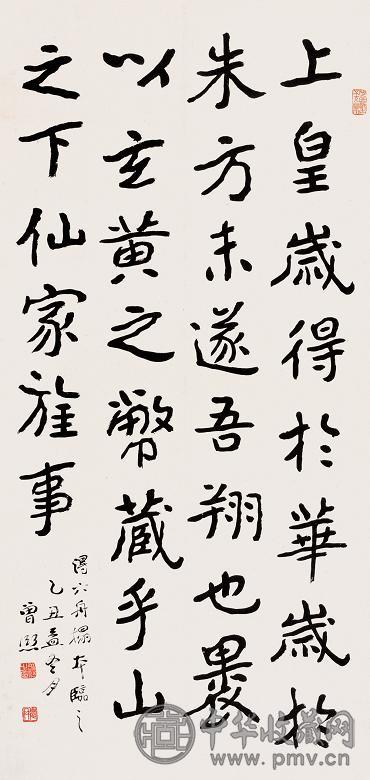 上皇歲得於華歲於
朱方未遂吾翔也裹
以玄黃之幣藏乎山
之下仙家旌事
得六舟拓本臨之
乙丑孟冬月
曾熙
中华收藏网
www.pmv.cn